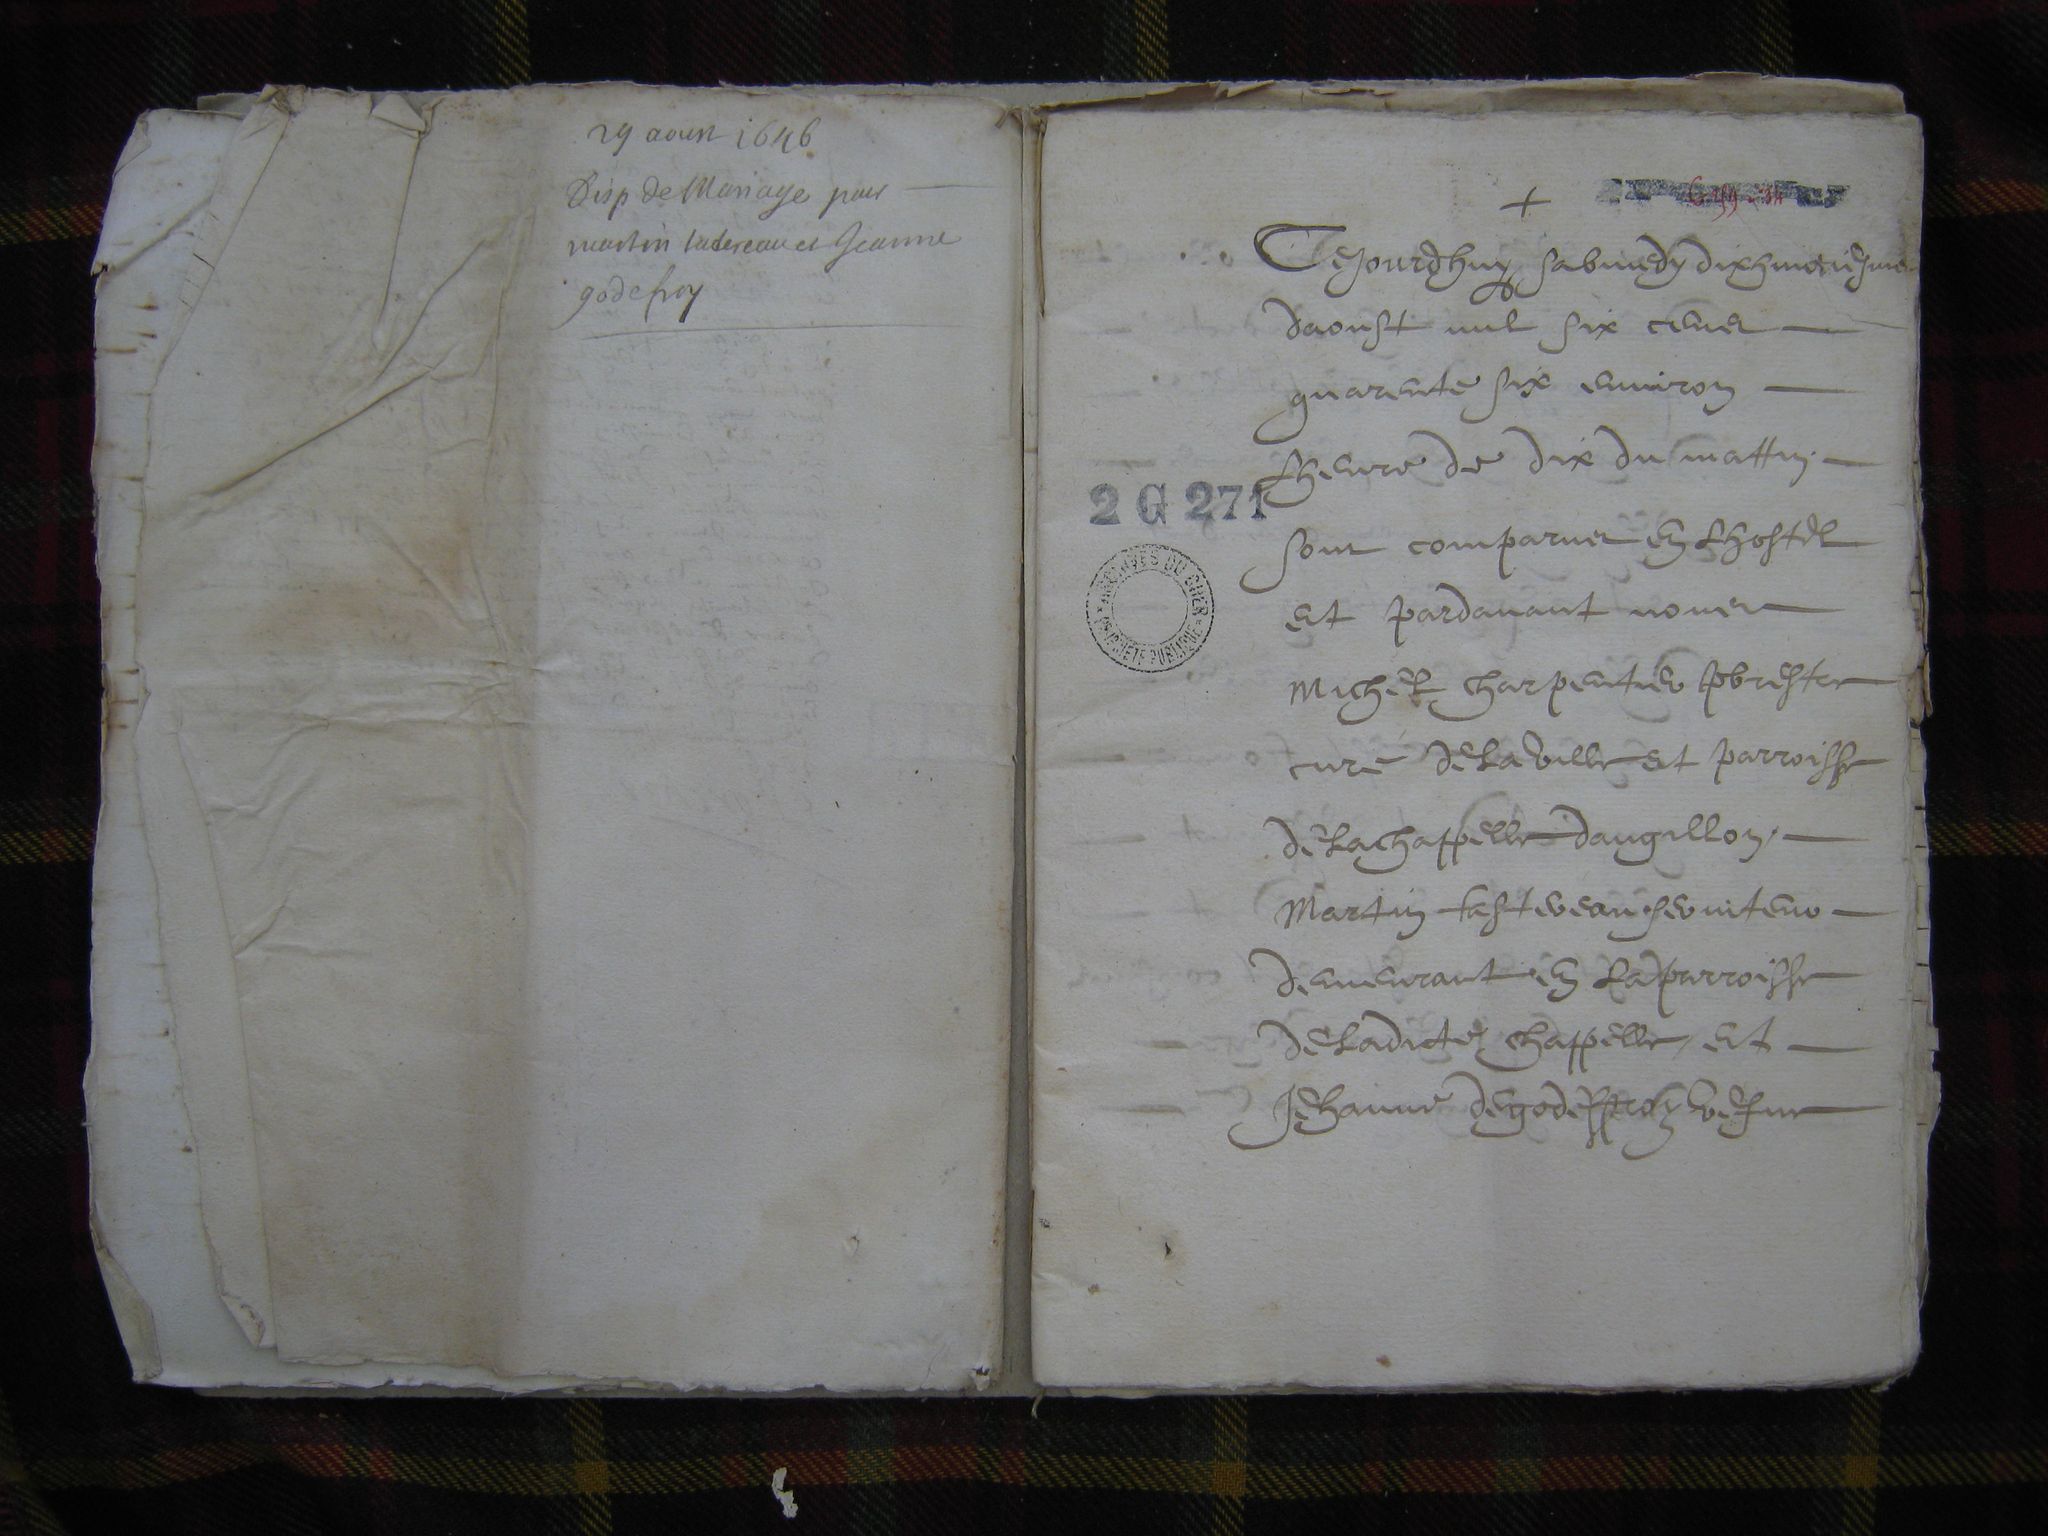 29 aoust 1646
Disp de Mariage pour
martin tatereau et Jeanne
godefroy
+
Cejourdhuy sabmedy dixhuictiesme
daoust mil six cens
quarente six environ
lheure de dix du mattin
sont comparus en lhostel
et pardavant nous
Michel Charpentier pbrestre
curé de la ville et parroisse
de la chappelle dangillon
2 G 271
ARCHIVES DU CHER
PROPRIÉTÉ PUBLIQUE
Martin tastereau serviteur
demeurant en la parroisse
de ladicte chappelle, et
Jehanne de godeffroy vefve